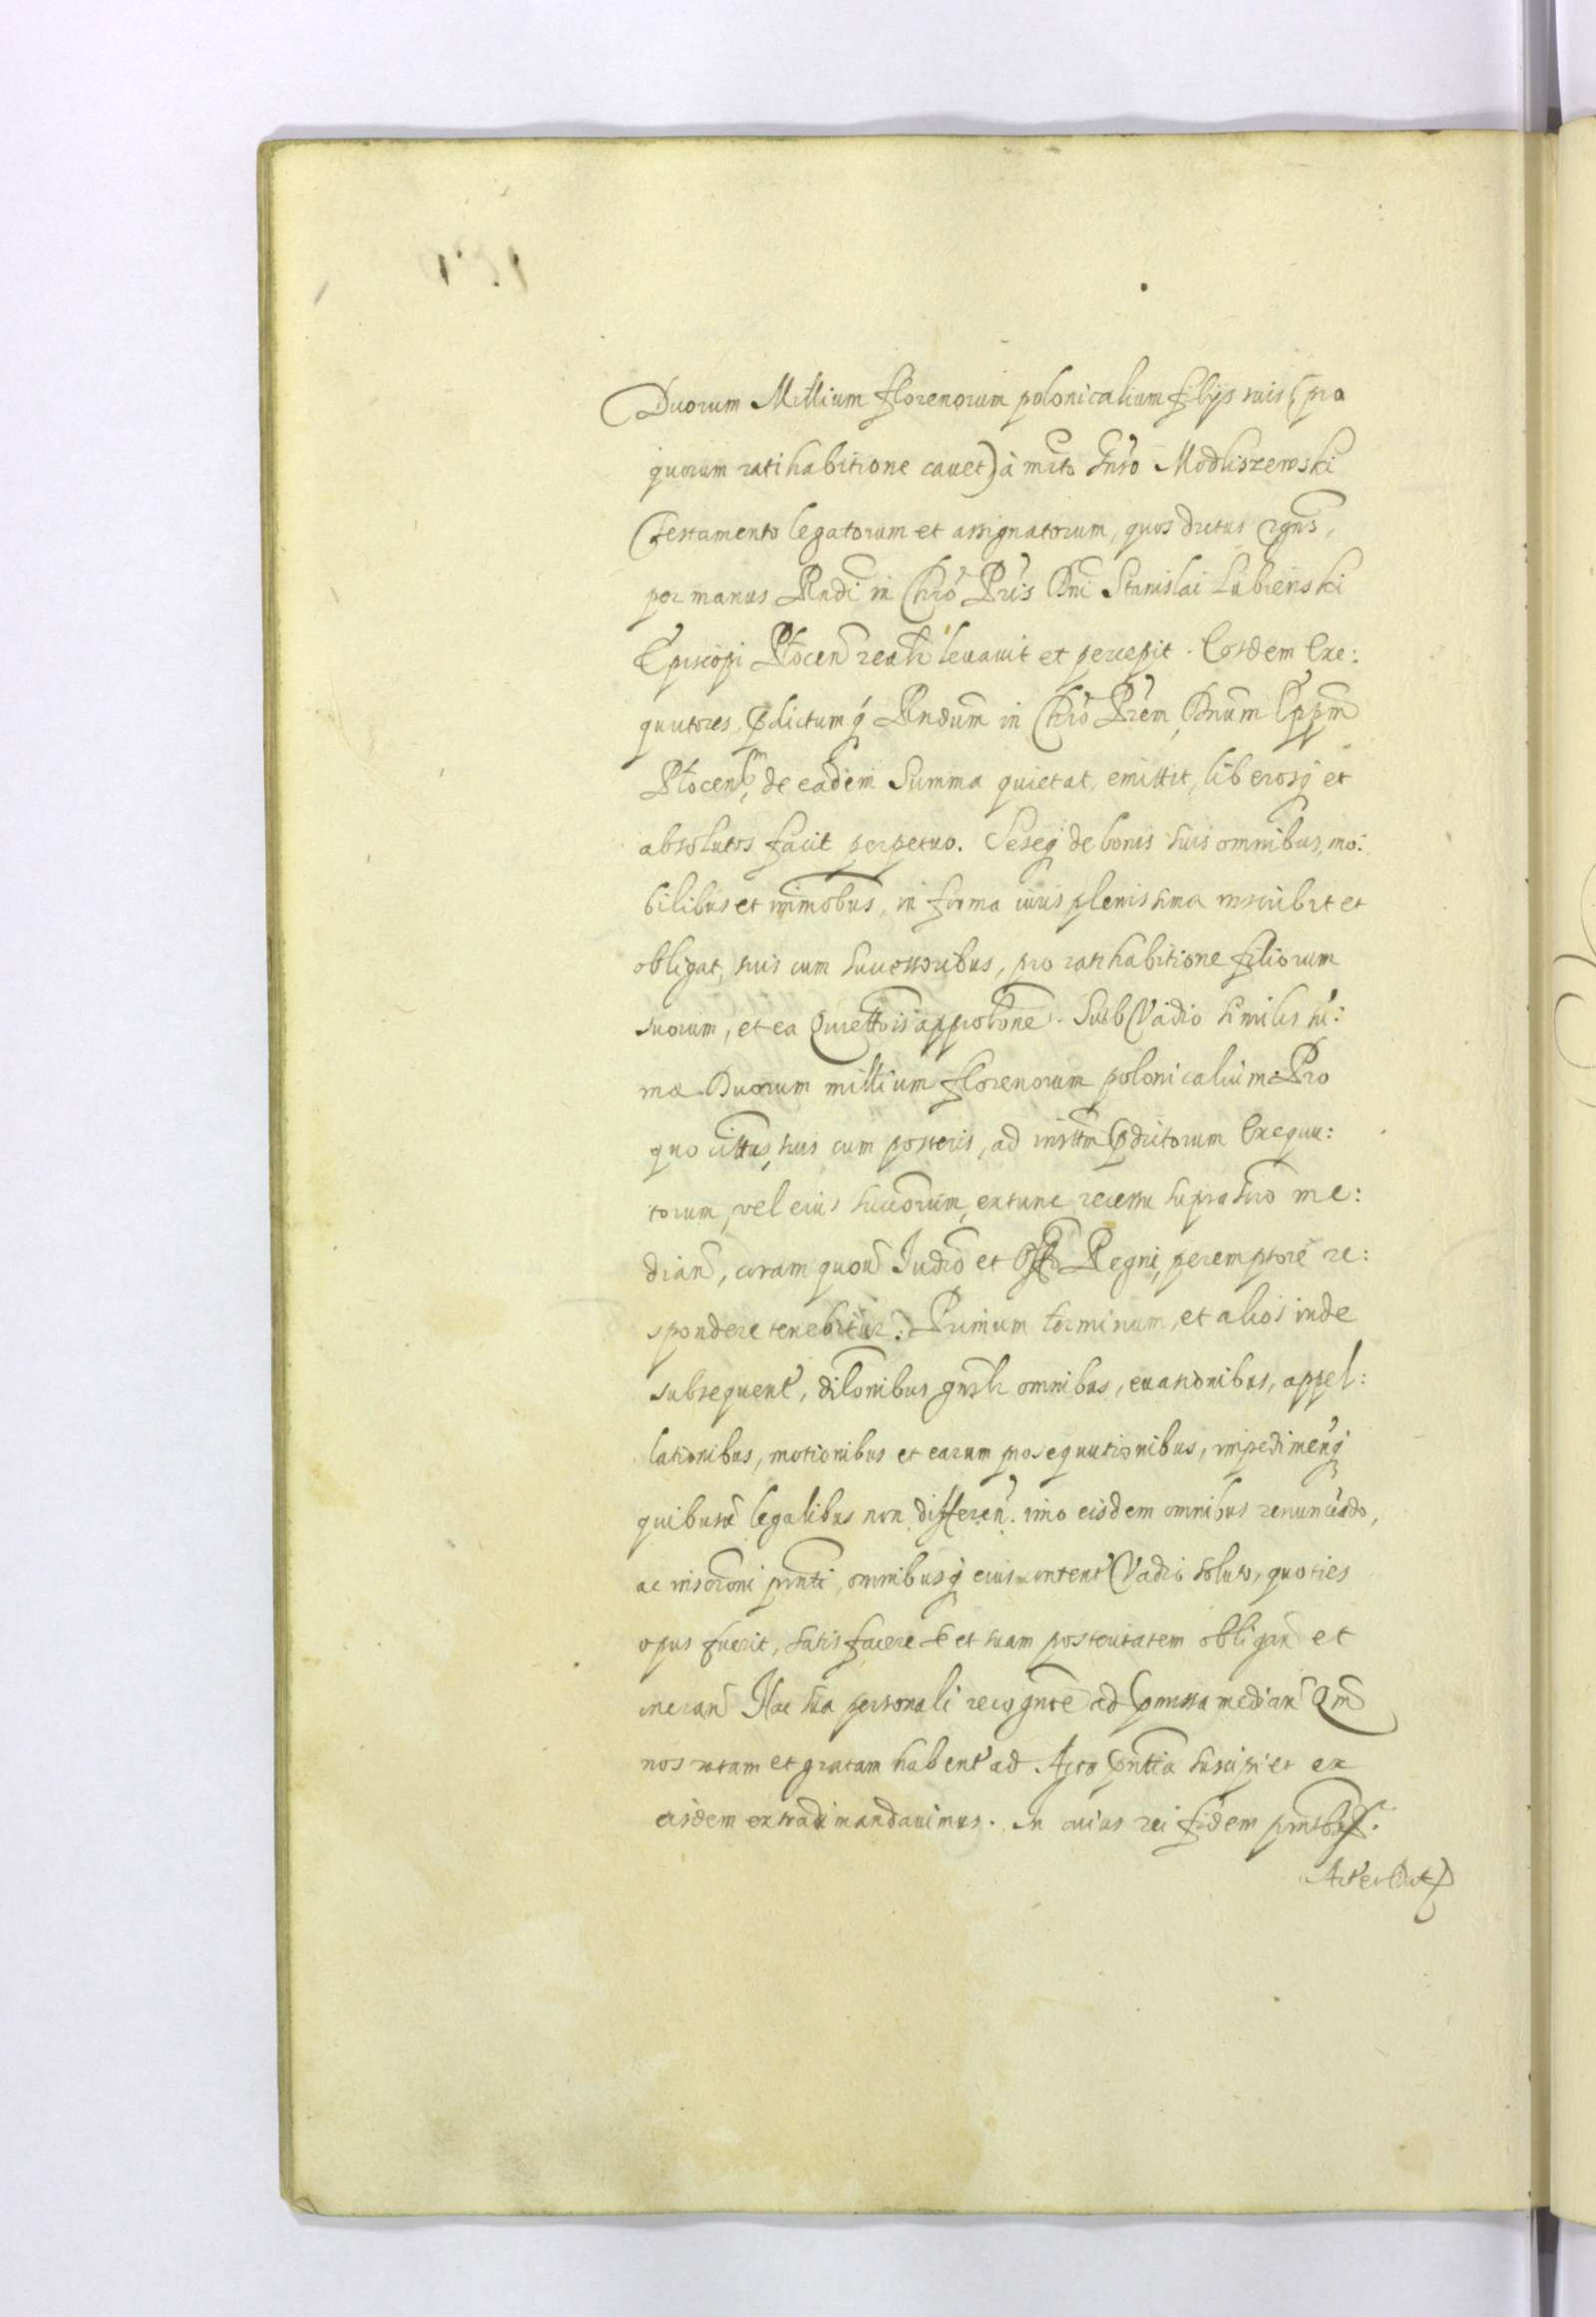 Duorum Millium florenorum polonicalium filys suis (pro
quorum ratihabitione cavet) à mrto Modliszewski
testamento legatorum et assignatorum, quos dictus rgns,
per manus Rndi in Chro Pris Dni Stanislai Lubienski
Episcopi Plocen realr levavit et percepit. Eosdem Exe:
quutores, pdictumq Rndum in Chro Prem, Dnum Eppm
Plocensem, de eadem Summa quietat, emittit, liberosq et
absolutos facit perpetuo. Seseq de bonis suis omnibus, mo:
bilibus et immobus, in forma iuris plenissima inscribit et
obligat, suis cum successoribus, pro ratihabitione filiorum
suorum, et ea Quiettois approbone. Sub Vadio similis su:
mæ Duorum millium florenorum polonicalium. Pro
quo cittus, suis cum posteris, ad insttm pdictorum Exequu:
torum, vel eius succorum, extunc recessu supra scro me:
dian, coram quovis Judio et Offo Regni, peremptore re:
spondere tenebitur. Primum terminum, et alios inde
subsequent, dilonibus gnrlr omnibus, evasionibus, appel:
lationibus, motionibus et earum prosequutionibus, impedimenq
quibusvis legalibus non differen. imo eisdem omnibus renunciado,
ac inscroni prnti, omnibusq eius content Vadio soluto, quoties
opus fuerit, satisfacere se et suam posteritatem obligan et
oneran Hac sua personali recognoe ad pmissa median Qm
nos ratam et gratam habent ad Acta pntia suscipi et ex
eisdem extradi mandavimus. In cuius rei fidem prntibus.
Act et Dat